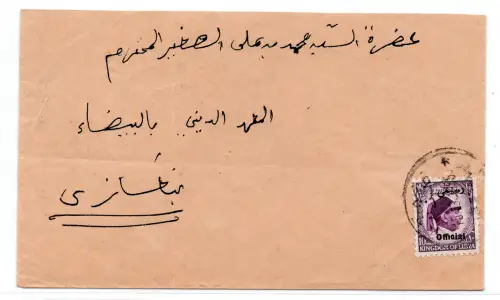 حضرة السيد محمد بن علي الصغير المحترم
المعهد الديني بالبيضاء
بنغازي
Official
KINGDOM OF LIBYA